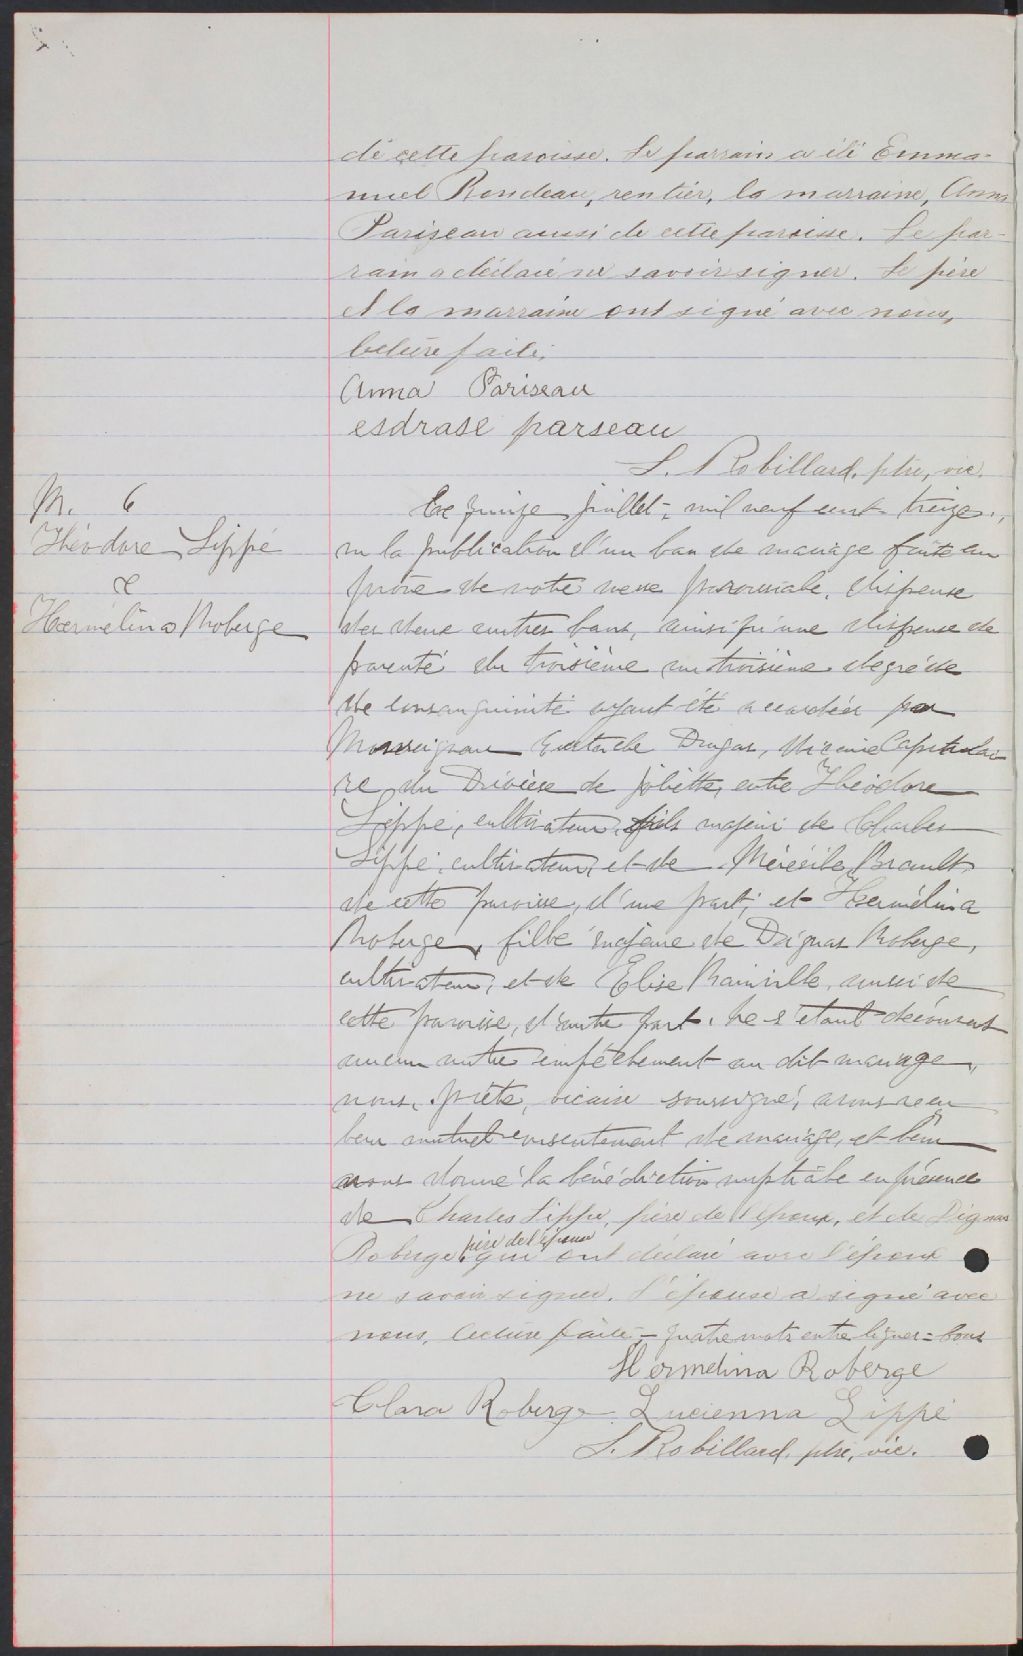 de cette paroisse. Le parrain a été Emma-
nuel Rondeau, rentier, la marraine, Anna
Pariseau aussi de cette paroisse. Le par-
rain a déclaré ne savoir signer. Le père
et la marraine ont signé avec nous,
lecture faite.
Anna Pariseau
esdrase parseau
S. Robillard, ptre, vic.
M. 6
Théodore Lippé
&
Hermélina Roberge
Le quinze juillet, mil neuf cent treize,
vu la publication d'un ban de mariage faite au
prône de notre messe paroissiale, dispense
des deux autres bans, ainsi qu'une dispense de
parenté du troisième au troisième degré de
de consanguinité ayant été accordées par
Monseigneur Eustache Dugas, Vicaire Capitulai-
re du Diocèse de Joliette, entre Théodore
Lippé, cultivateur, fils majeur de Charles
Lippé, cultivateur, et de Mérésile Brault
de cette paroisse, d'une part; et Hermélina
Roberge, fille majeure de Dignas Roberge,
cultivateur, et de Elise Rainville, aussi de
cette paroisse, d'autre part. Ne s'étant découvert
aucun autre empêchement au dit mariage,
nous, prêtre, vicaire soussigné, avons reçu
leur mutuel consentement de mariage, et leur
avons donné la bénédiction nuptiale en présence
de Charles Lippé, père de l'époux, et de Dignas
Roberge père de l'épouse qui ont déclaré avec l'époux
ne savoir signer. L'épouse a signé avec
nous, lecture faite, – quatre mots entre lignes = bons
Hermelina Roberge
Clara Roberge Lucienna Lippé
S. Robillard, ptre, vic.